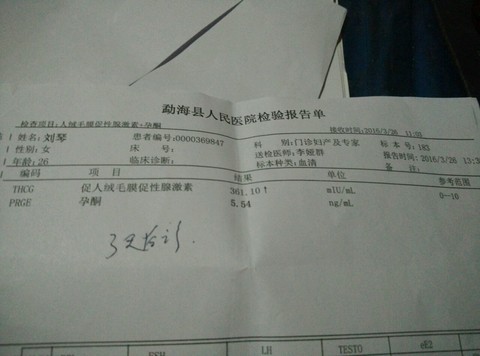 勐海县人民医院检验报告单
检查项目:人绒毛膜促性腺激素·孕酮 接收时间:2016/3/26 11:55
姓名:刘琴 患者编号:0000369847 科 别:门诊妇产及专家 标 本 号:183
性别:女 床 号: 送检医师:李娅群 报告时间:2016/3/26
年龄:26 临床诊断: 标本种类:血清 备 注:
编码 项 目 结果 单位 参考范围
THCG 促人绒毛膜促性腺激素 361.10↑ mIU/mL 0--10
PRGE 孕酮 5.54 ng/mL
FSH LH TESTO eE2